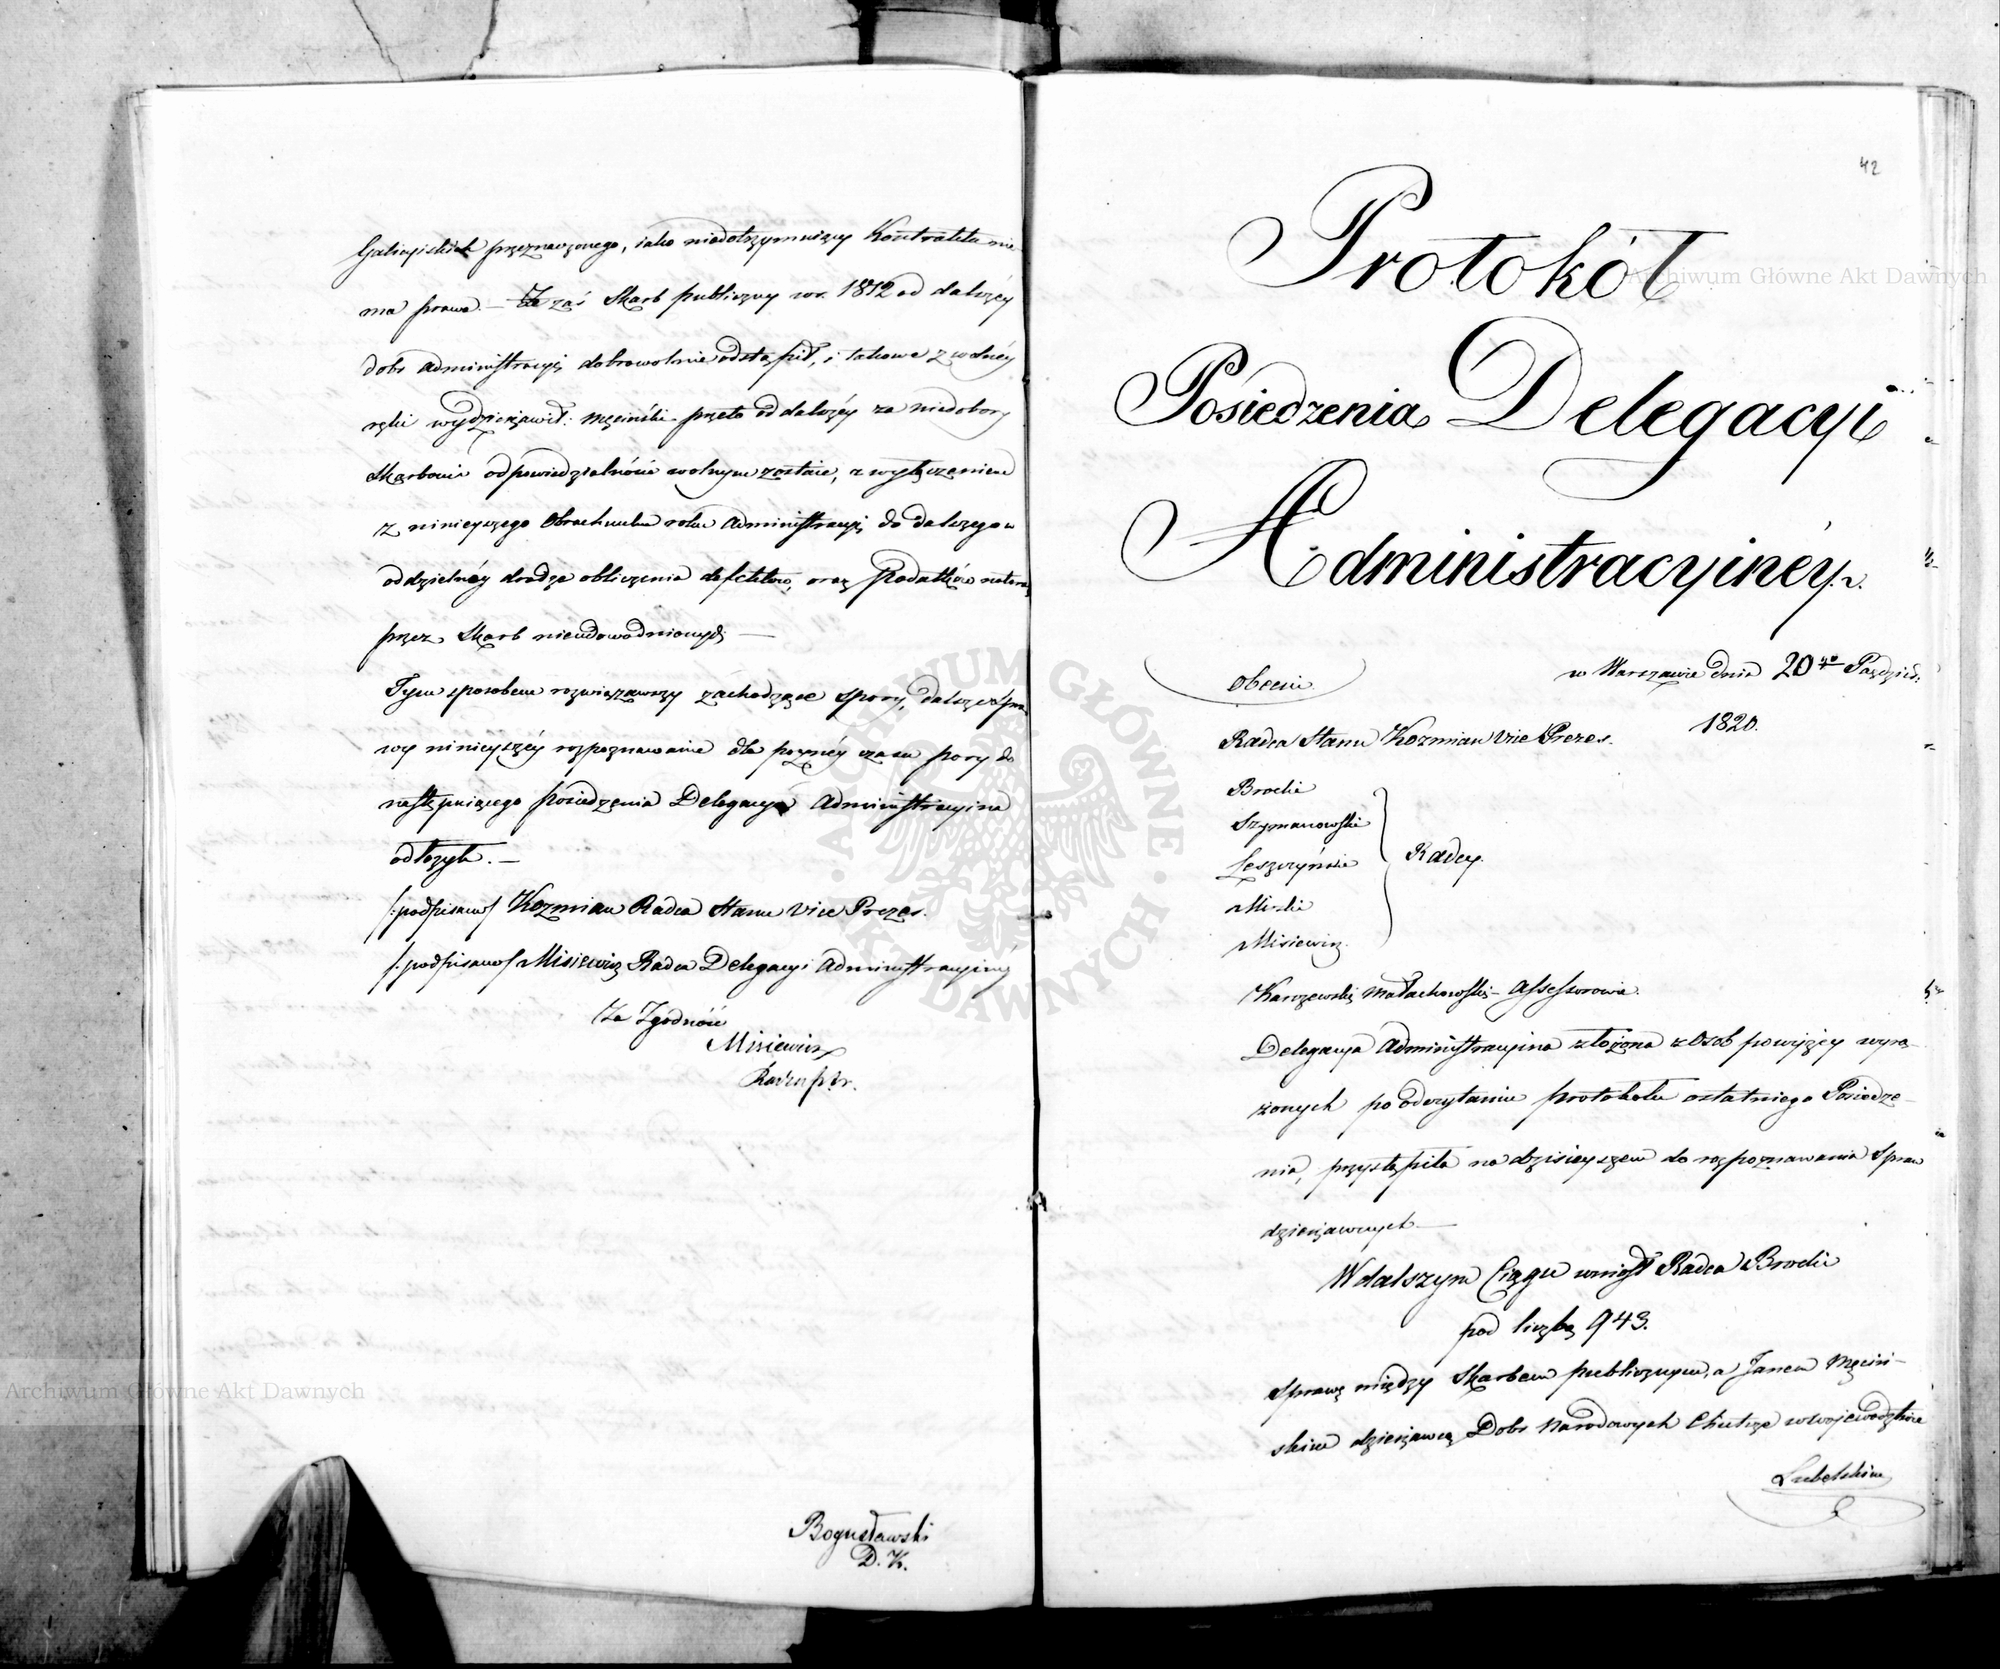 Galicyiskich przeznaczonego, iako niedotrzymuiący Kontraktu nie
ma prawa. — Że zaś Skarb publiczny w r. 1812 od dalszéy
dobr administracyi dobrowolnie odstąpił, i takowe z wolnéy
ręki wydzierżawił: Męciński przeto od dalszéy za niedobory
Skarbowi odpowiedzialności wolnym zostaie, z wyłączeniem
z ninieyszego Obrachunku roku administracyi do dalszego w
oddzielnéy drodze obliczenia defektów, oraz Podatków
przez Skarb nieudowodnionych —
Tym sposobem rozwiązawszy zachodzące spory, dalsze spra
wy ninieyszéy rozpoznawanie dla poznéy czasu pory do
następuiącego posiedzenia Delegacya Administracyina
odłożyła. —
/:podpisano/ Kozmian Radca Stanu Vice Prezes.
/:podpisano/ Misiewicz Radca Delegacyi Administracyinéy
Za Zgodność
Misiewicz
Bogusławski
D. K.
42
Protokół
Posiedzenia Delegacyi
Administracyinéy
w Warszawie dnia 20go Paździer:
1820.
Obecni
Radca Stanu Kozmian Vice Prezes.
Brocki
Szymanowski
Leszczyński
Radcy.
Mirski
Misiewicz.
Karczewski, Małachowski — Assessorowie.
Delegacya Administracyina złożona z Osob powyżéy wyra-
żonych po odczytaniu protokołu ostatniego Posiedze-
nia, przystąpiła na dzisieyszem do rozpoznawania Spraw
dzierżawnych —
W dalszym Ciągu wniósł Radca Brocki
pod liczbą 943.
Sprawę między Skarbem publicznym, a Janem Męciń-
skim dzierżawcą Dobr Narodowych Chutcze w wojewodztwie
Lubelskim
Archiwum Główne Akt Dawnych
Archiwum Główne Akt Dawnych
ARCHIWUM GŁÓWNE · AKT DAWNYCH ·